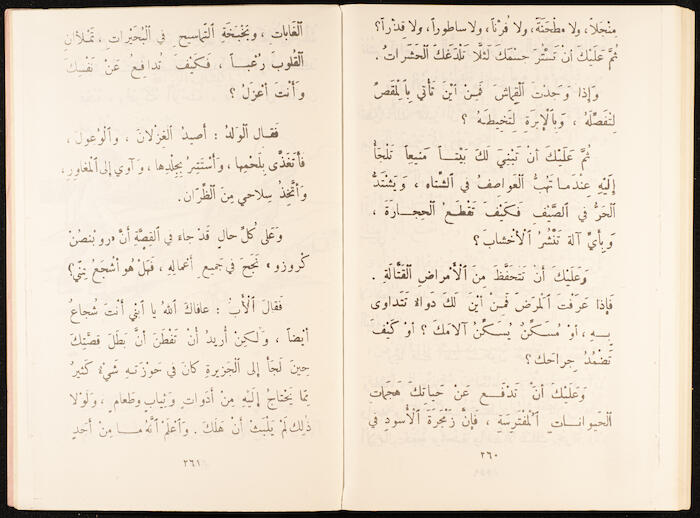 مِنْجَلاً، ولا مِطْحَنَةً، ولا فُرْناً، ولا ساطوراً، ولا قِدْراً؟
ثُمَّ عَلَيْكَ أنْ تَسْتُرَ جِسْمَكَ لئلَّا تَلْدَغَكَ الْحَشَراتُ.
وَإذا وَجَدْتَ الْقُماشَ فَمِنْ أيْنَ تَأتي بِالْمِقَصِّ
لتُفَصِّلَهُ، وَبِالْإبْرَةِ لِتَخيطَهُ؟
ثُمَّ عَلَيْكَ أنْ تَبْنِيَ لَكَ بَيْتاً مَنيعاً تَلْجَأُ
إلَيْهِ عِنْدَما تَهُبُّ الْعَواصِفُ في الشِّتاءِ، وَيَشْتَدُّ
الْحَرُّ في الصَّيْفِ فَكَيْفَ تَقْطَعُ الْحِجارَةَ،
وَبِأيِّ آلة تَنْشُرُ الْأخْشابَ؟
وَعَلَيْكَ أنْ تَتَحَفَّظَ مِنَ الْأمْراضِ الْقَتَّالَةِ.
فَإذا عَرَفْتَ الْمَرَضَ فَمِنْ أيْنَ لَكَ دَواءٌ تَتَداوى
بِهِ، أوْ مُسَكِّنٌ يُسَكِّنُ آلامَكَ؟ أوْ كَيْفَ
تَضْمُدُ جِراحَك؟
وَعَلَيْكَ أنْ تَدْفَعَ عَنْ حَياتِكَ هَجَماتِ
الْحَيَواناتِ الْمُفْتَرِسَةِ، فَإنَّ زَمْجَرَةَ الْأسودِ في
٢٦٠
الْغاباتِ، وَبَخْبَخَةِ التَّماسيحِ في الْبُحَيْراتِ، تَمْلَأانِ
الْقُلوبَ رُعْباً، فَكَيْفَ تُدافِعُ عَنْ نَفْسِكَ
وَأنْتَ أعْزَلُ؟
فَقالَ الْوَلَدُ: أصيدُ الْغِزْلانَ، وَالْوُعولَ،
فَأتَغَذَّى بِلَحْمِها، وَأسْتَتِرُ بِجِلْدِها، وَآوي إلى الْمَغاوِرِ،
وَأتَّخِذُ سِلاحي مِنَ الظِّرَّانِ.
وَعَلى كُلِّ حالٍ قَدْ جاءَ في الْقِصَّةِ أنَّ «روبنصُنْ
كْروزو» نَجَحَ في جَميعِ أعْمالِهِ، فَهَلْ هُوَ أشْجَعُ مِنِّي؟
فَقالَ الْأبُ: عافاكَ اللهُ يا ابْني أنْتَ شُجاعٌ
أيْضاً، وَلَكِنْ أُريدُ أنْ تَفْطَنَ أنَّ بَطَلَ قِصَّتِكَ
حينَ لَجَأَ إلى الْجَزيرةِ كانَ في حَوْزَتِهِ شَيْءٌ كَثيرٌ
مِمَّا يَحْتاجُ إلَيْهِ مِنْ أدَواتٍ وَثِيابٍ وَطَعامٍ، وَلَوْلا
ذلِكَ لَمْ يَلْبَثْ أنْ هَلَكَ. وَاعْلَمْ أنَّهُ ما مِنْ أحَدٍ
٢٦١